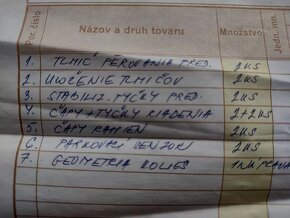 Por. číslo Názov a druh tovaru Množstvo Jedn. mn.
1. TLMIČ PEROVANIA PRED. 2 KS
2. ULOŽENIE TLMIČOV 2 KS
3. STABILIZ. TYČKY PRED. 2 KS
4. ČAPY + TYČKY RIADENIA 2+2 KS
5. ČAPY RAMIEN 2 KS
6. PARKOVACÍ SENZOR 2 KS
7. GEOMETRIA KOLIES